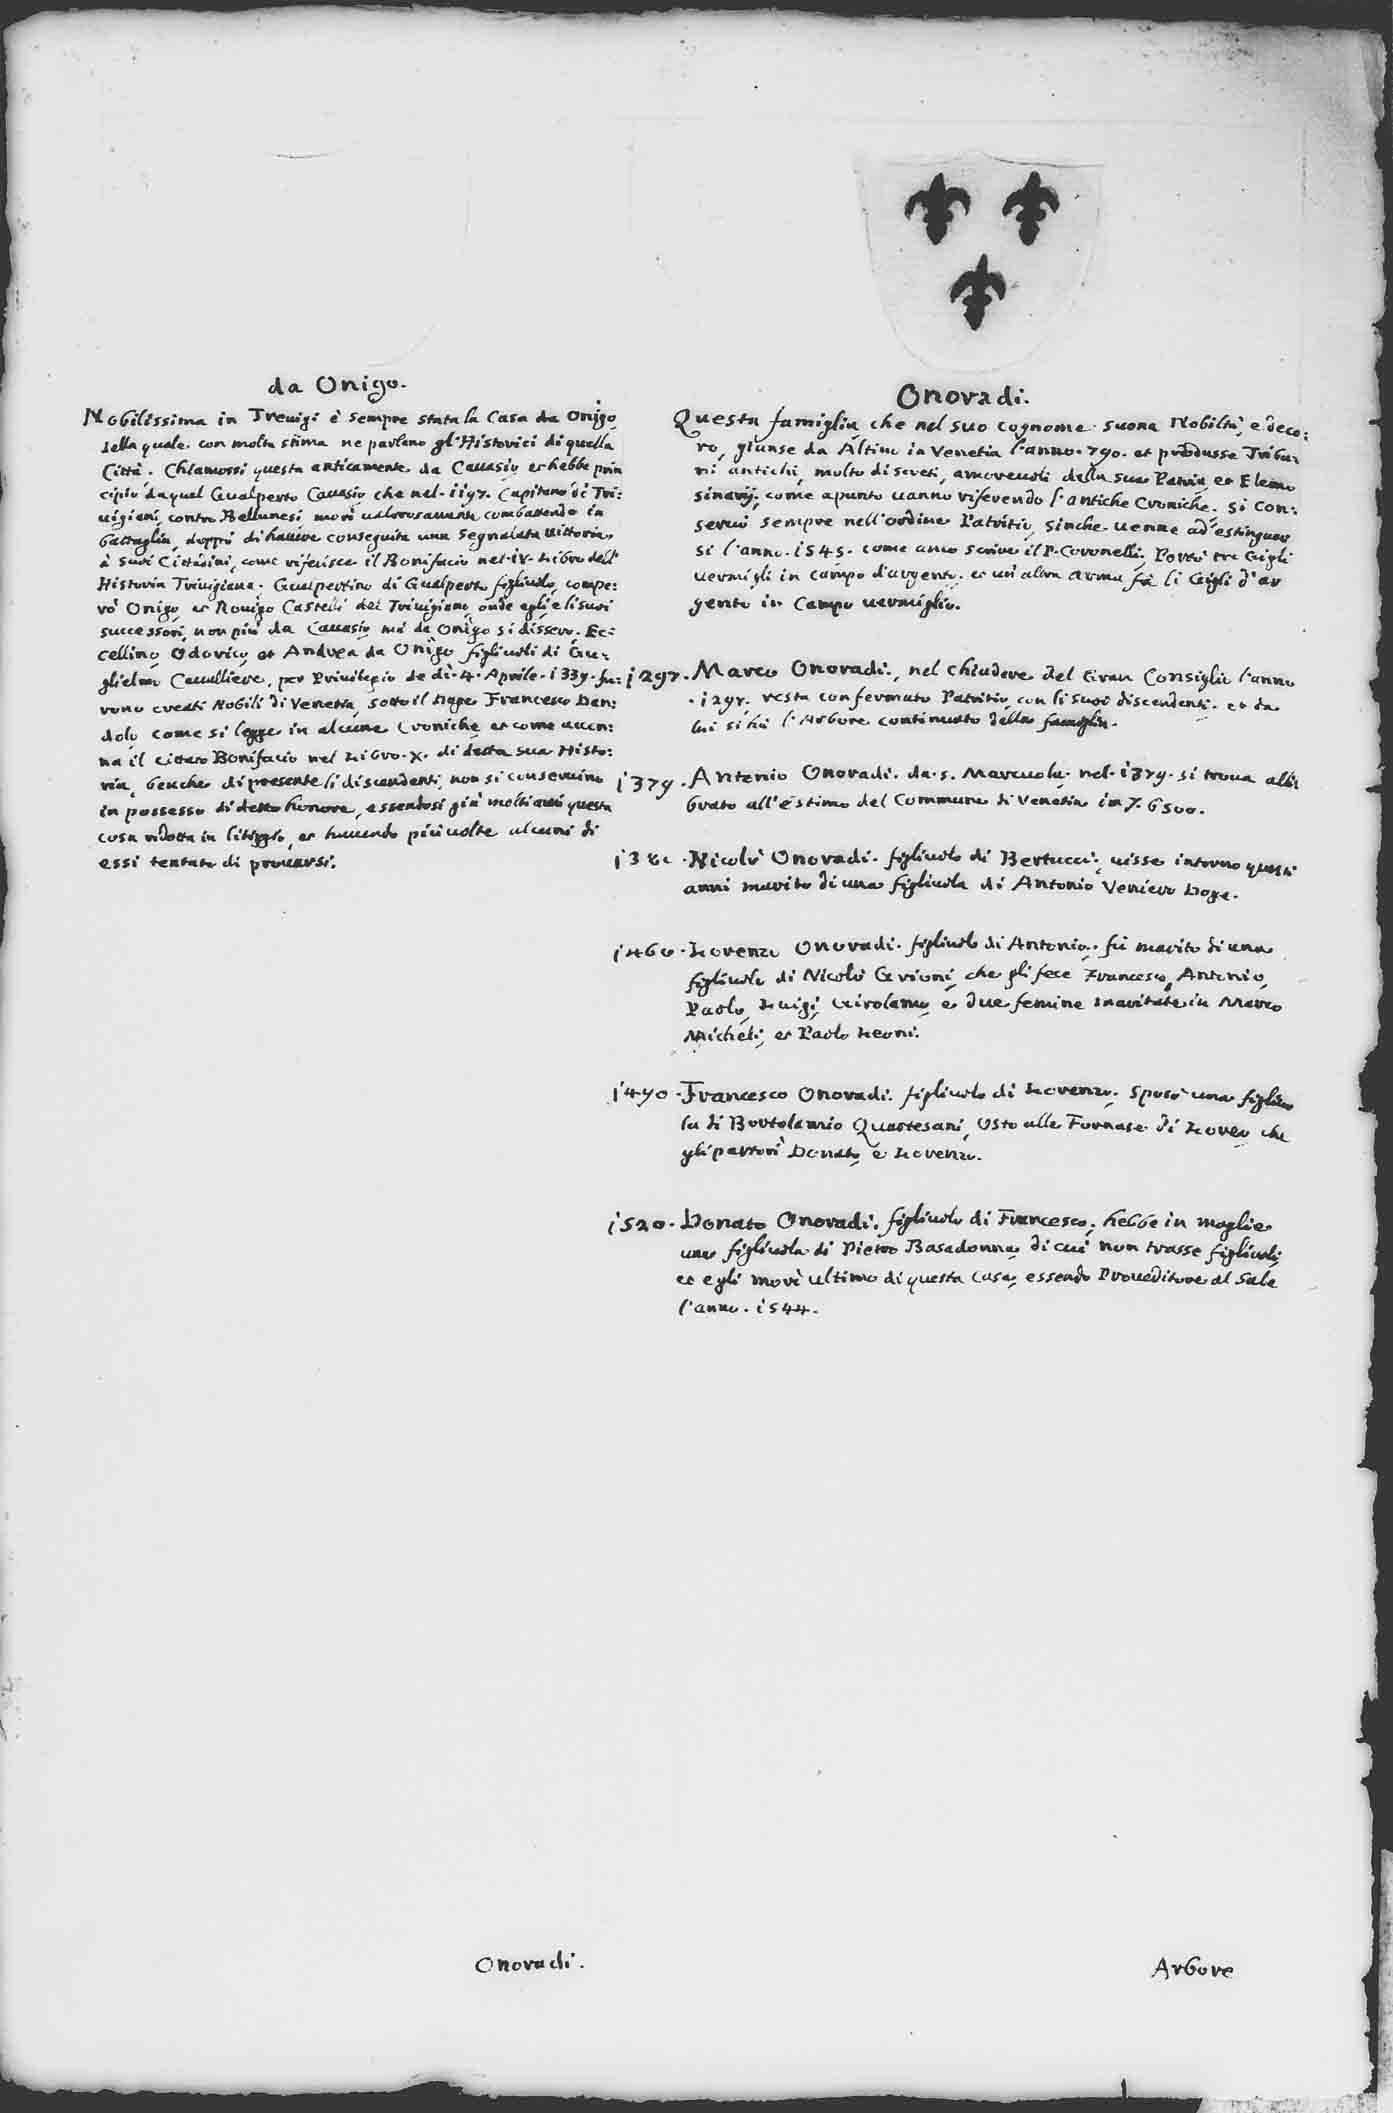 da Onigo.
Nobilissima in Trevigi è sempre stata la Casa da Onigo,
della quale con molta stima ne parlano gl'Historici di quella
Città. Chiamossi questa anticamente da Cavasio, et hebbe prin
cipio da quel Gualperto Cavasio che nel. 1197. Capitano di Tri:
uigiani, contro Bellunesi morì ualorosamente combattendo in
battaglia, doppò di hauere conseguita una segnalata uittoria
à suoi Cittadini, come riferisce il Bonifacio nel. iv. Libro dell'
Historia Triuigiana. Gualpertino di Gualperto figliuolo, compe:
rò Onigo, et Rouigo Castelli del Triuigiano, onde egli, e li suoi
successori, non più da Cauasio, mà da Onigo si dissero. Ec:
cellino, Odorico, et Andrea da Onigo figliuoli di Gu:
glielmo Caualliere, per Priuilegio de dì. 4. Aprile. 1339. fu:
rono creati Nobili di Venetia, sotto il Doge Francesco Dan:
dolo, come si legge in alcune Croniche, et come accen:
na il citato Bonifacio nel Libro. X. di detta sua Histo:
ria, benche di presente li discendenti, non si conseruino
in possesso di detto honore, essendosi già molti anni questa
cosa ridotta in litiggio, et hauendo più uolte alcuni di
essi tentato di prouarsi.
Onoradi.
Questa famiglia che nel suo cognome suona Nobiltà, e deco:
ro, giunse da Altino in Venetia l'anno. 790. et produsse Tribu:
ni antichi, molto discreti, amoreuoli della sua Patria, et Elemo
sinarij, come apunto uanno riferendo l'antiche Croniche. Si con:
seruò sempre nell'ordine Patritio, sinche uenne ad estinguer
si l'anno. 1545. come anco scriue il P. Coronelli. Portò tre Gigli
uermigli in campo d'argento. et un'altra arma fà li Gigli d'ar
gento in Campo uermiglio.
1297. Marco Onoradi., nel chiudere del Gran Consiglio l'anno
. 1297. resta confermato Patritio, con li suoi discendenti. et da
lui si hà l'Arbore continuato della famiglia.
1379. Antonio Onoradi. da. S. Marcuola. nel. 1379. si troua alli
brato all'estimo del Commune di Venetia in 7. 6500.
Nicolò Onoradi. figliuolo di Bertucci. uisse intorno questi
anni marito di una figliuola di Antonio Veniero Doge.
1460. Lorenzo Onoradi. figliuolo di Antonio. fù marito di una
figliuola di Nicolò Grioni, che gli fece Francesco, Antonio,
Paolo, Luigi, Girolamo, e due femine maritate in Marco
Micheli, et Paolo Leoni.
1490. Francesco Onoradi. figliuolo di Lorenzo. Sposò una figliuo
la di Bortolamio Quartesani, Osto alle Fornase di Loreo che
gli partorì Donato, e Lorenzo.
1520. Donato Onoradi. figliuolo di Francesco, hebbe in moglie
una figliuola di Pietro Basadonna, di cui non trasse figliuoli,
et egli morì ultimo di questa Casa, essendo Proueditore al Sale
l'anno. 1544.
Onoradi.
Arbore